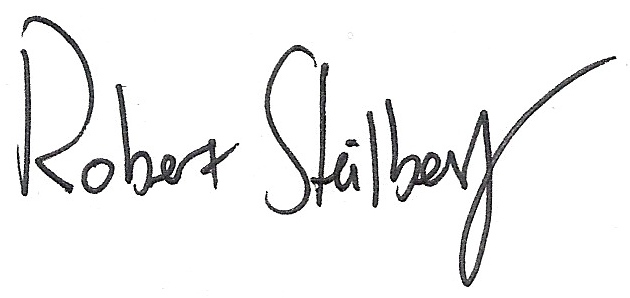 Robert Stälberg